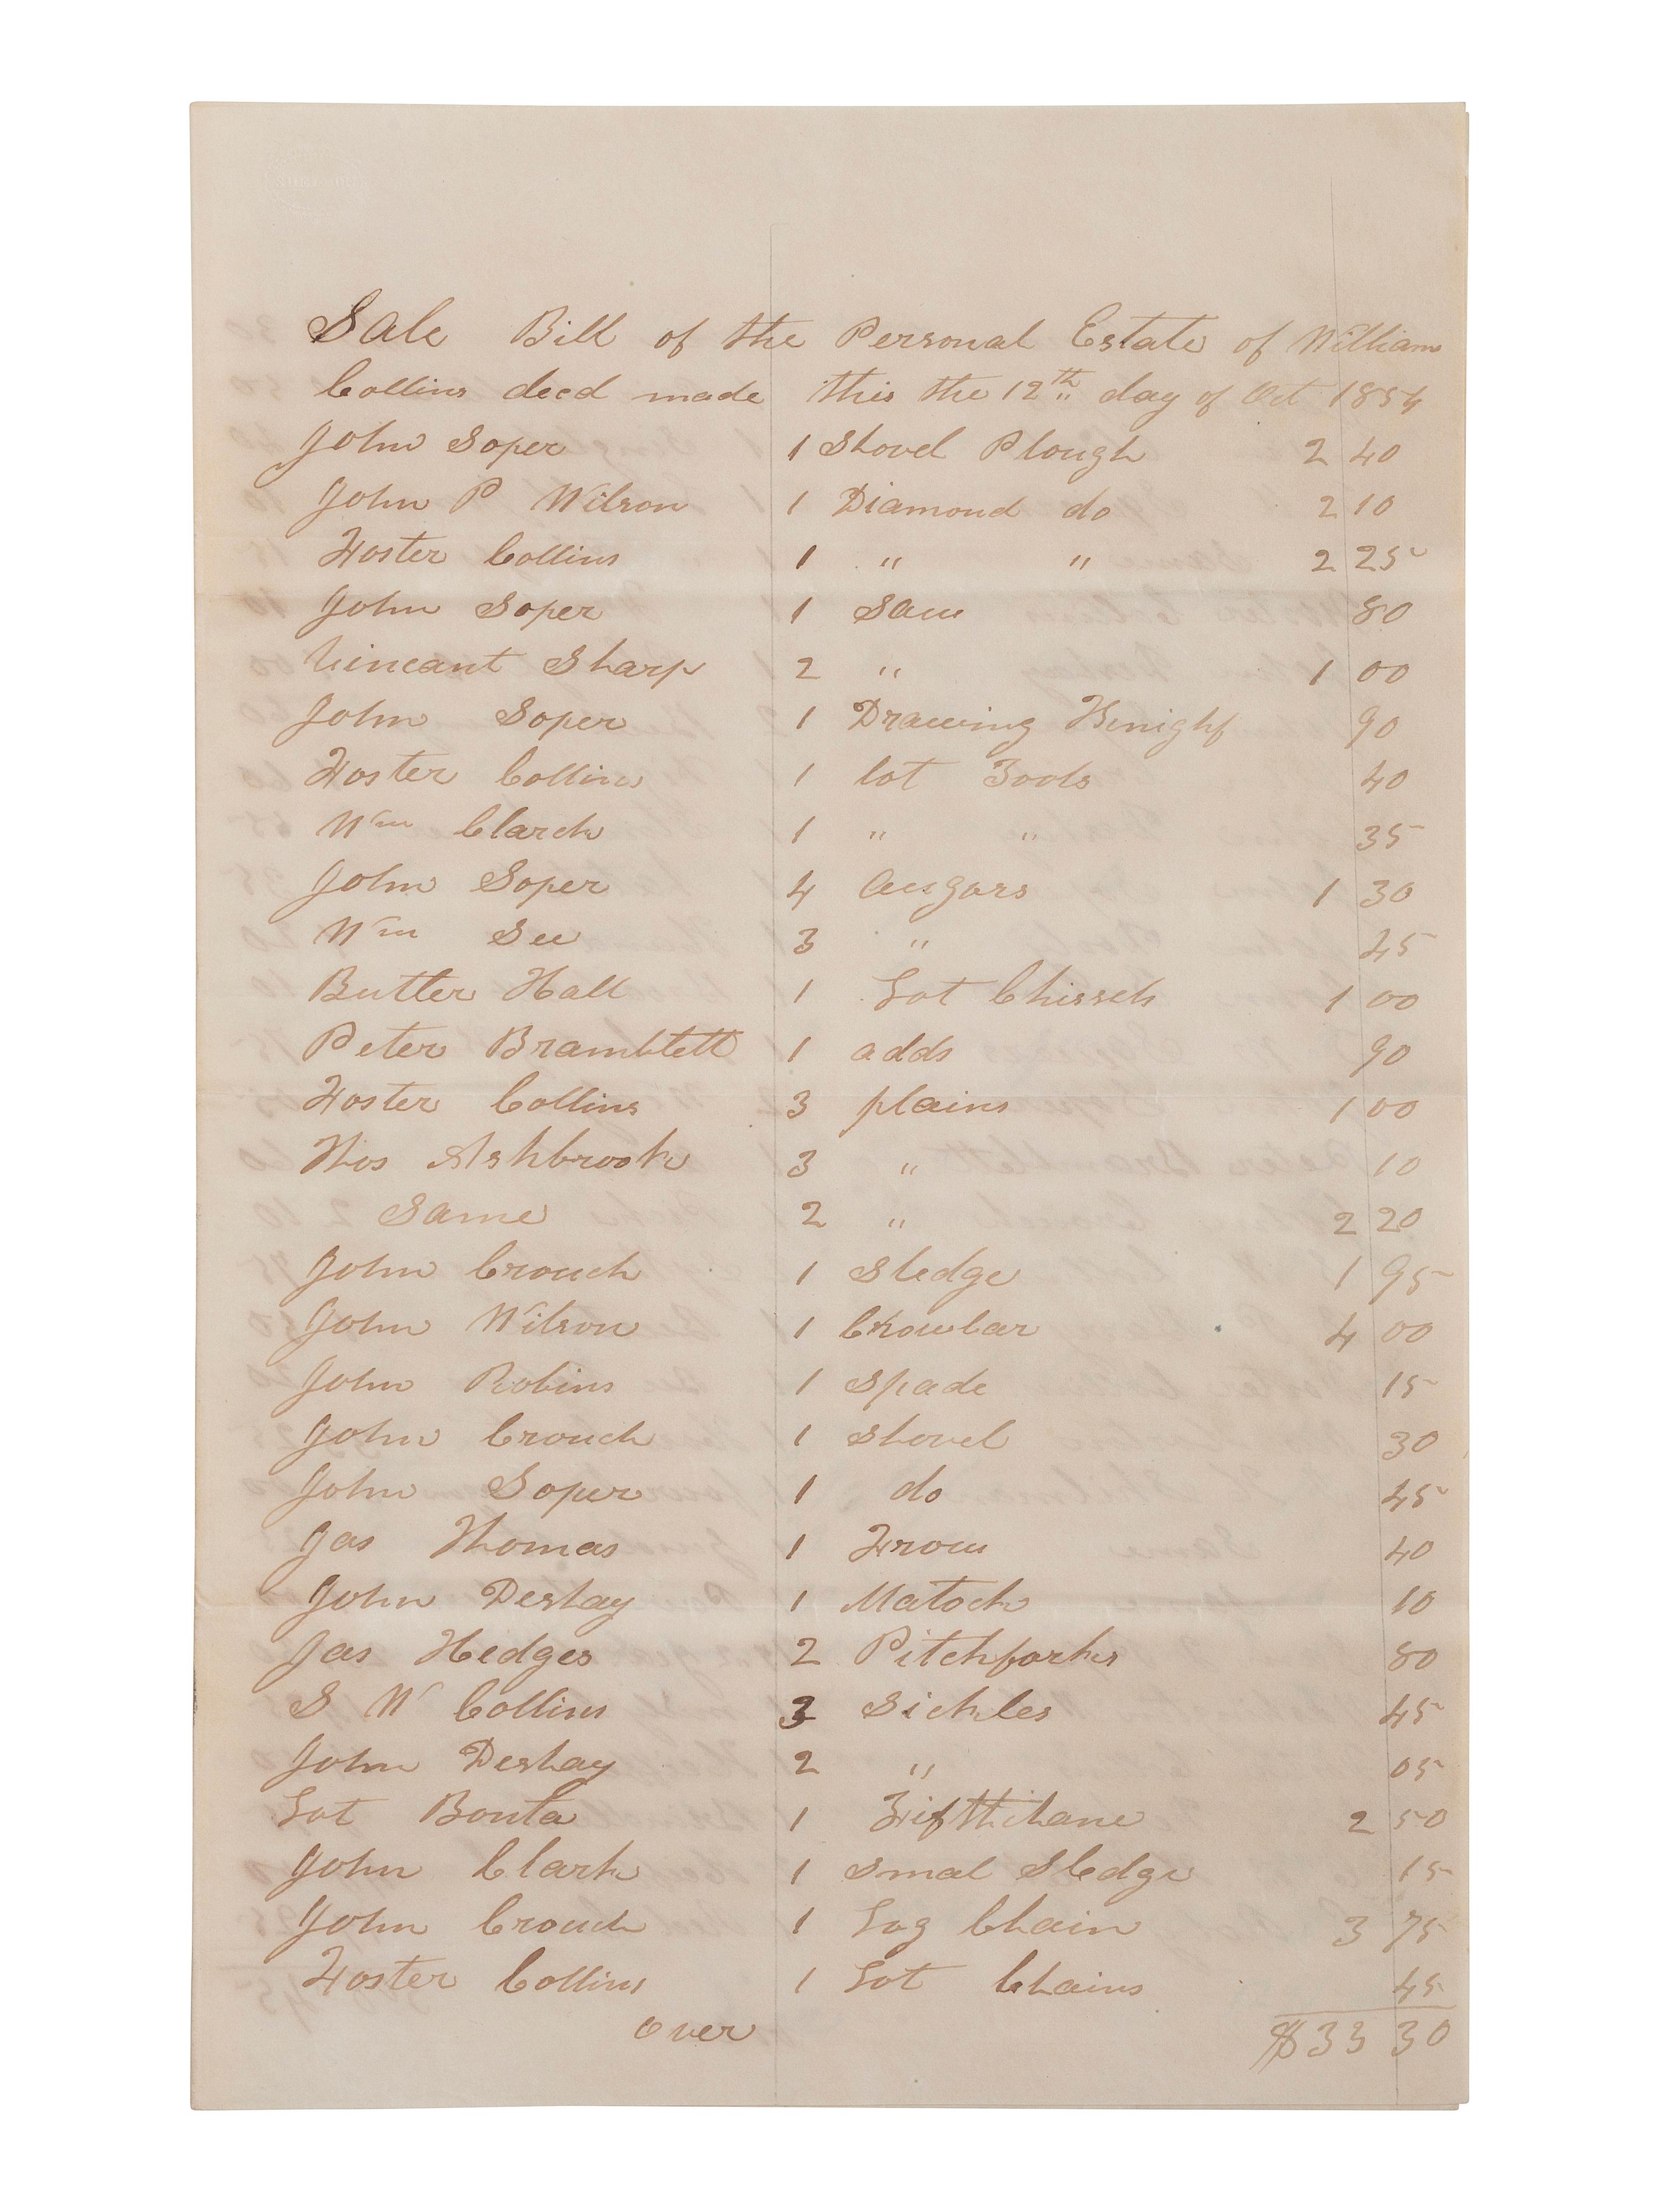 Sale Bill of the Personal Estate of William
Collins decd made this the 12th day of Oct 1854
John Soper 1 Shovel Plough 2 40
John P Wilson 1 Diamond do 2 10
Foster Collins 1 " " 2 25
John Soper 1 Saw 80
Vincant Sharp 2 " 1 00
John Soper 1 Drawing Knight 90
Foster Collins 1 lot Tools 40
Wm Clarck 1 " " 35
John Soper 4 Augars 1 30
Wm See 3 " 45
Butler Hall 1 Lot Chissels 1 00
Peter Bramblett 1 adds 90
Foster Collins 3 plains 1 00
Thos Ashbrook 3 " 10
Same 2 " 2 20
John Crouch 1 Sledge 1 95
John Wilson 1 Crowbar 4 00
John Robins 1 Spade 15
John Crouch 1 Shovel 30
John Soper 1 do 45
Jas Thomas 1 Frow 40
John Deshay 1 Matock 10
Jas Hedges 2 Pitchforks 80
S W Collins 3 Sickles 45
John Deshay 2 " 05
Lot Bonta 1 2 50
John Clark 1 Smal Sledge 15
John Crouch 1 Log Chain 3 75
Foster Collins 1 Lot Chains 45
over $33 30